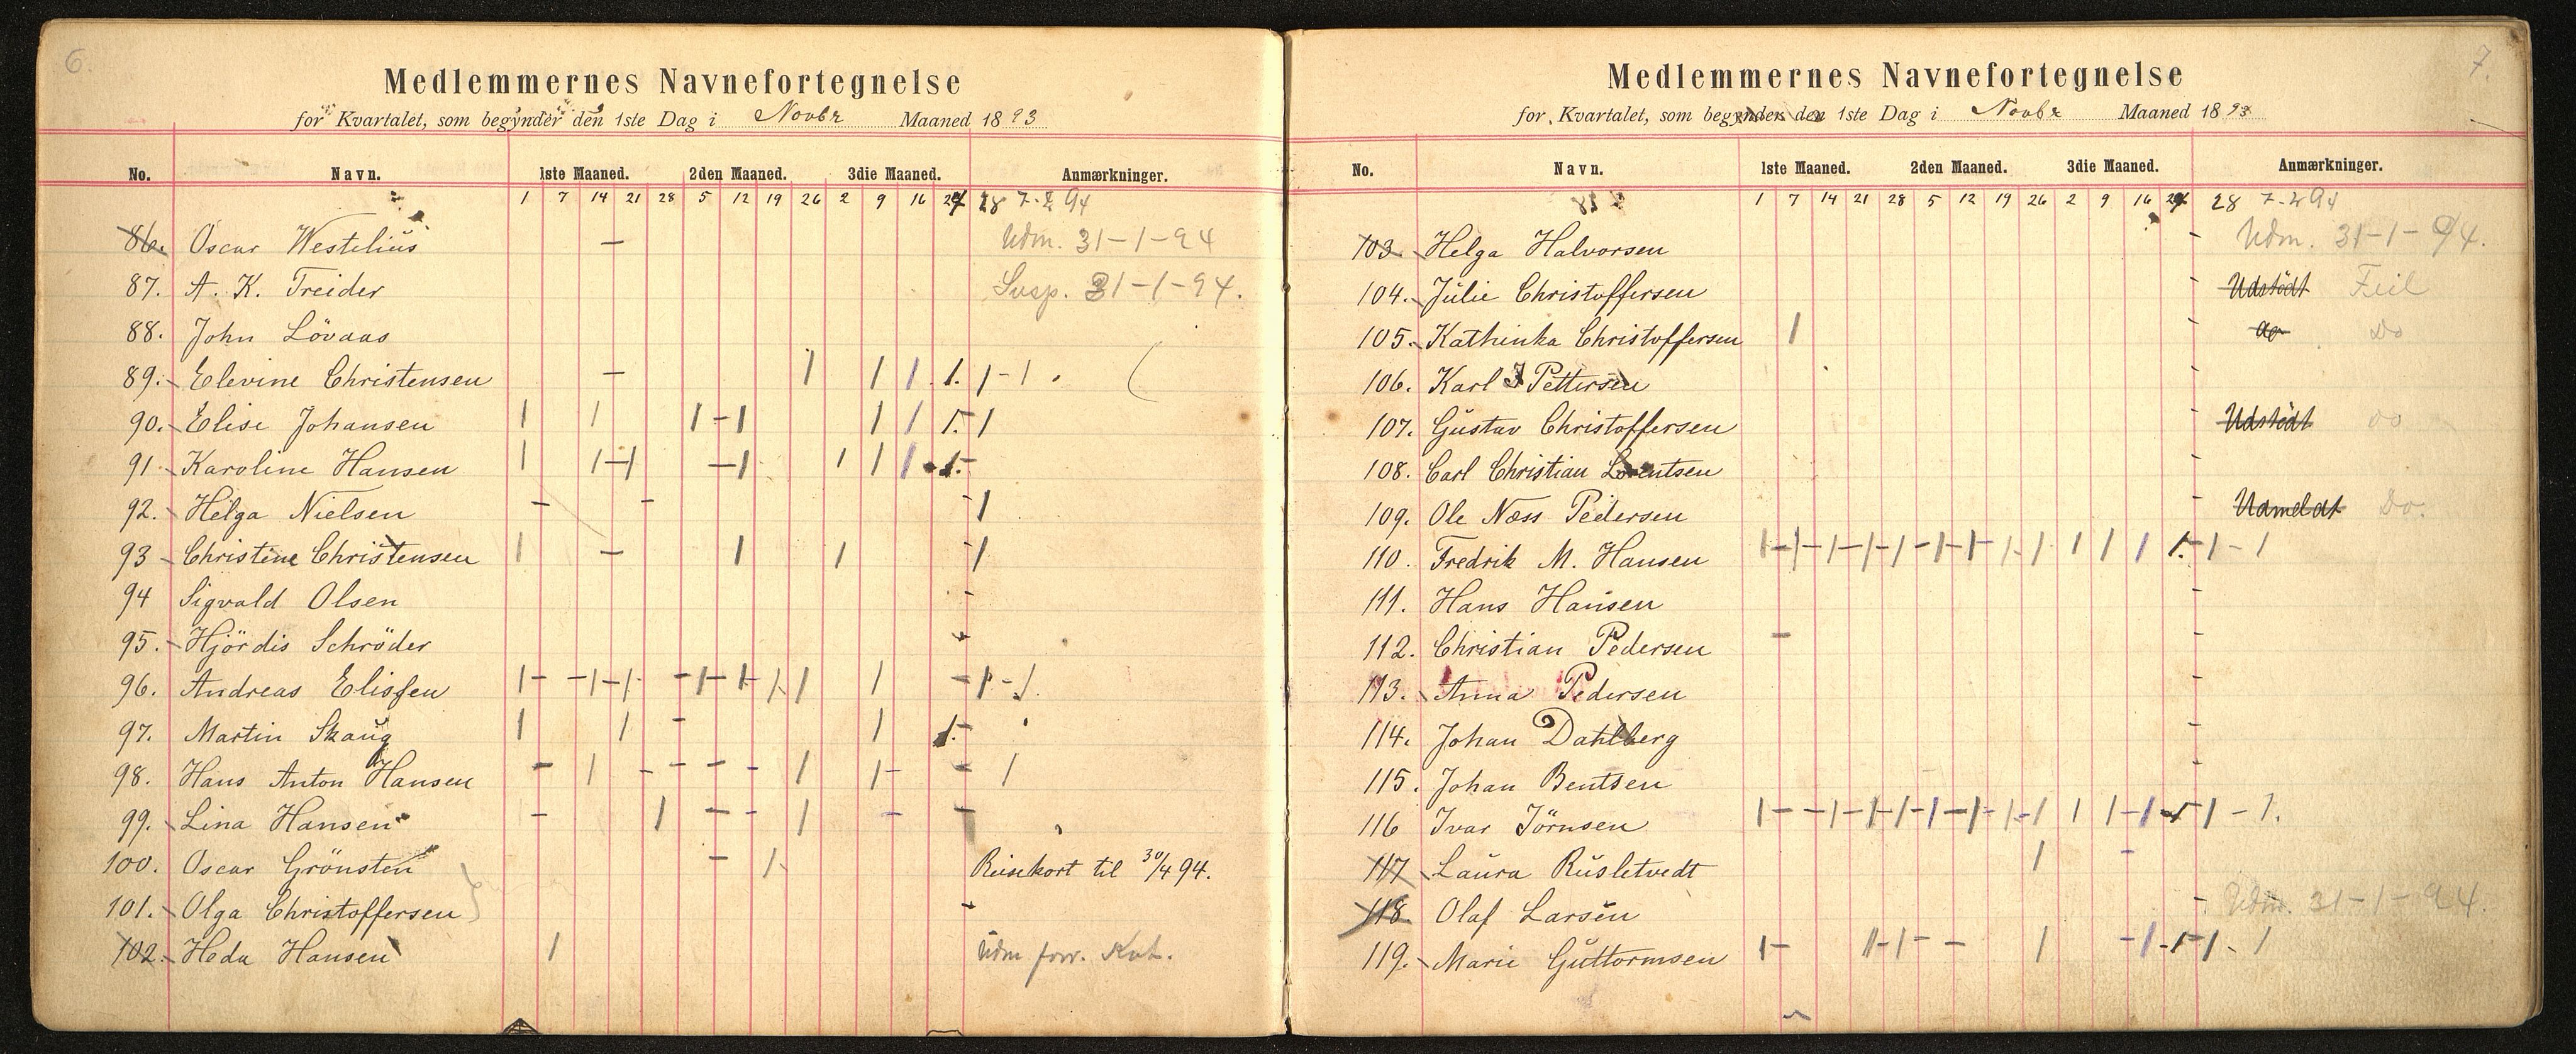 6.
Medlemmernes Navnefortegnelse
for Kvartalet, som begynder den 1ste Dag i Novbr Maaned 1893
No. Navn. 1ste Maaned. 2den Maaned. 3die Maaned. Anmærkninger.
1 7 14 21 28 5 12 19 26 2 9 16 24 28 7-2 94
86. Oscar Westelius Udm. 31-1-94
87. A. K. Treider Susp. 31-1-94.
88. John Lövaas
89. Elevine Christensen
90. Elise Johansen
91 Karoline Hansen
92. Helga Nielsen
93 Christine Christensen
94 Sigvald Olsen
95. Hjördis Schröder
96. Andreas Elissen
97. Martin Skaug
98. Hans Anton Hansen
99. Lina Hansen
100. Oscar Grönsten Reisekort til 30/4 94.
101. Olga Christoffersen
102. Heda Hansen Udm forr. Kvt.
7.
Medlemmernes Navnefortegnelse
for Kvartalet, som begynder den 1ste Dag i Novbr Maaned 1893
No. Navn. 1ste Maaned. 2den Maaned. 3die Maaned. Anmærkninger.
1 7 14 21 28 5 12 19 26 2 9 16 24 28 7-2 94
103. Helga Halvorsen Udm. 31-1-94.
104. Julie Christoffersen Udstödt Feil
105. Kathinka Christoffersen do Do
106. Karl J Pettersen
107. Gustav Christoffersen Udstödt do
108. Carl Christian Lorentsen
109. Ole Næss Pedersen Udmeldt Do.
110. Fredrik M. Hansen
111. Hans Hansen
112. Christian Pedersen
113. Anna Pedersen
114. Johan Dahlberg
115. Johan Bentsen
116 Ivar Jörnsen
117 Laura Rusletvedt
118 Olaf Larsen Udm. 31-1-94.
119. Marie Guttormsen